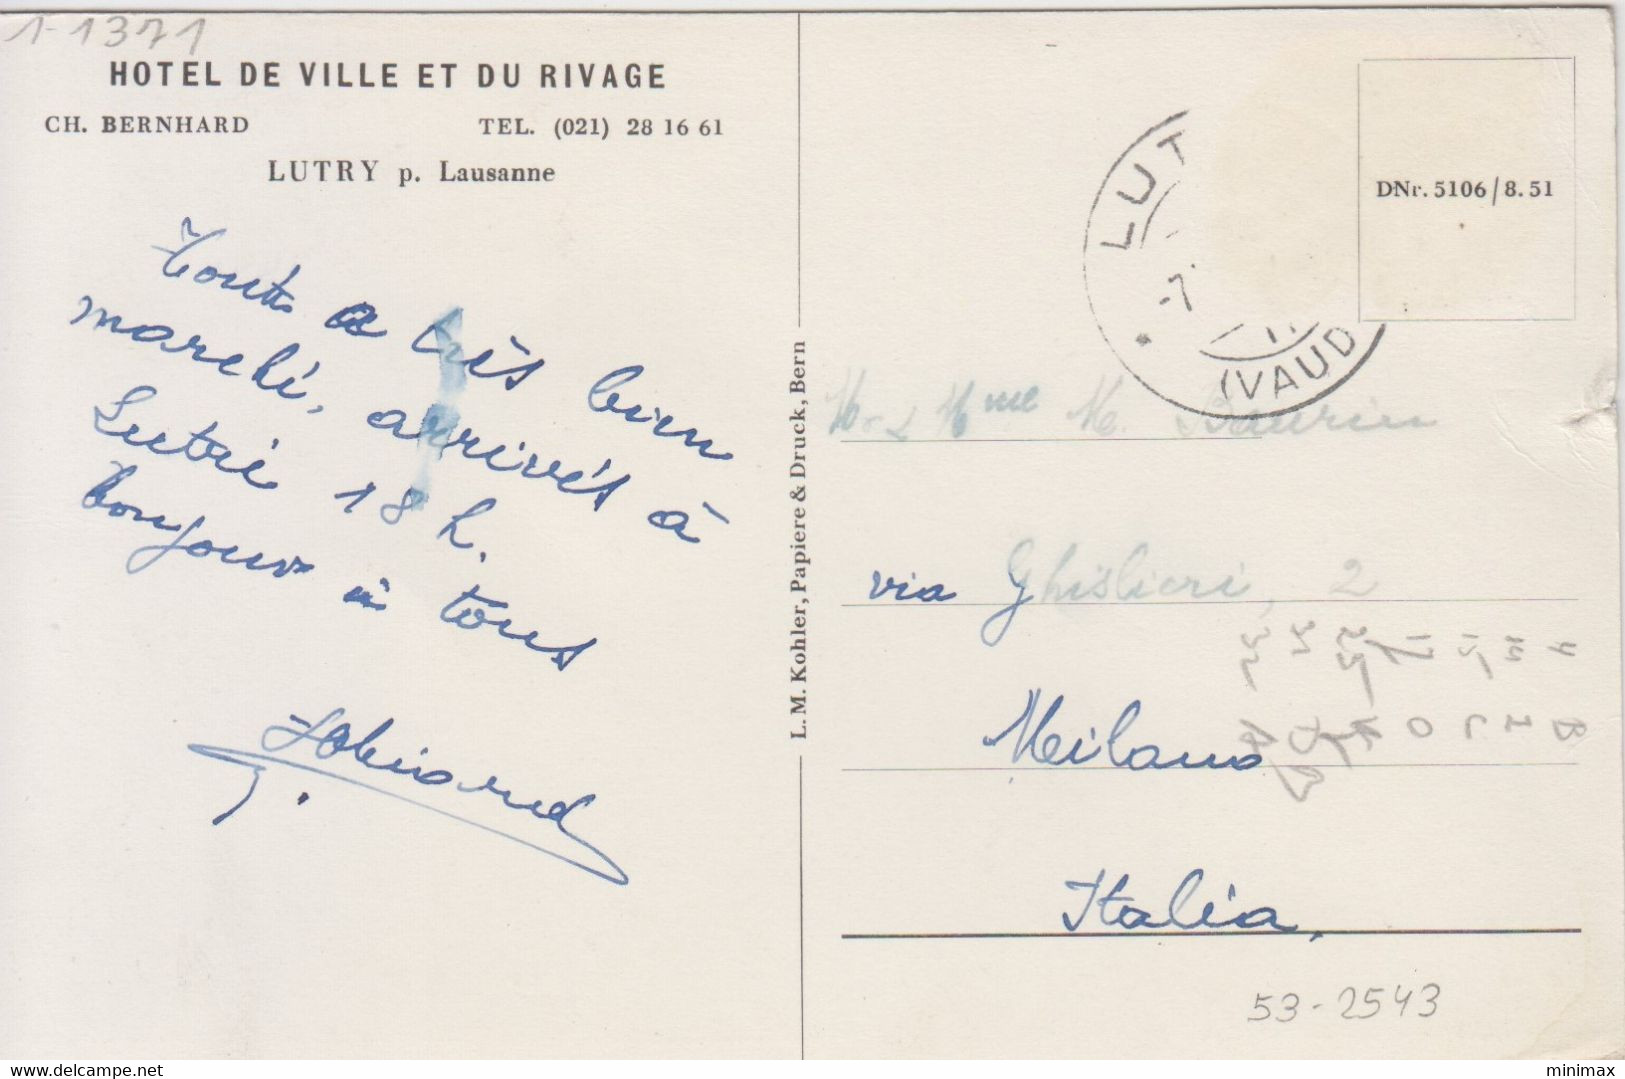 1-1371
HOTEL DE VILLE ET DU RIVAGE
CH. BERNHARD TEL. (021) 28 16 61
LUTRY p. Lausanne
Tout a très bien
marché, arrivés à
Lutri 18 h.
bonjour à tous
L. M. Kohler, Papiere & Druck, Bern
LUT
-7.
(VAUD
DNr. 5106/8.51
Mme M.
via Ghislieri, 2
Milano
Italia,
53-2543
www.delcampe.net
minimax